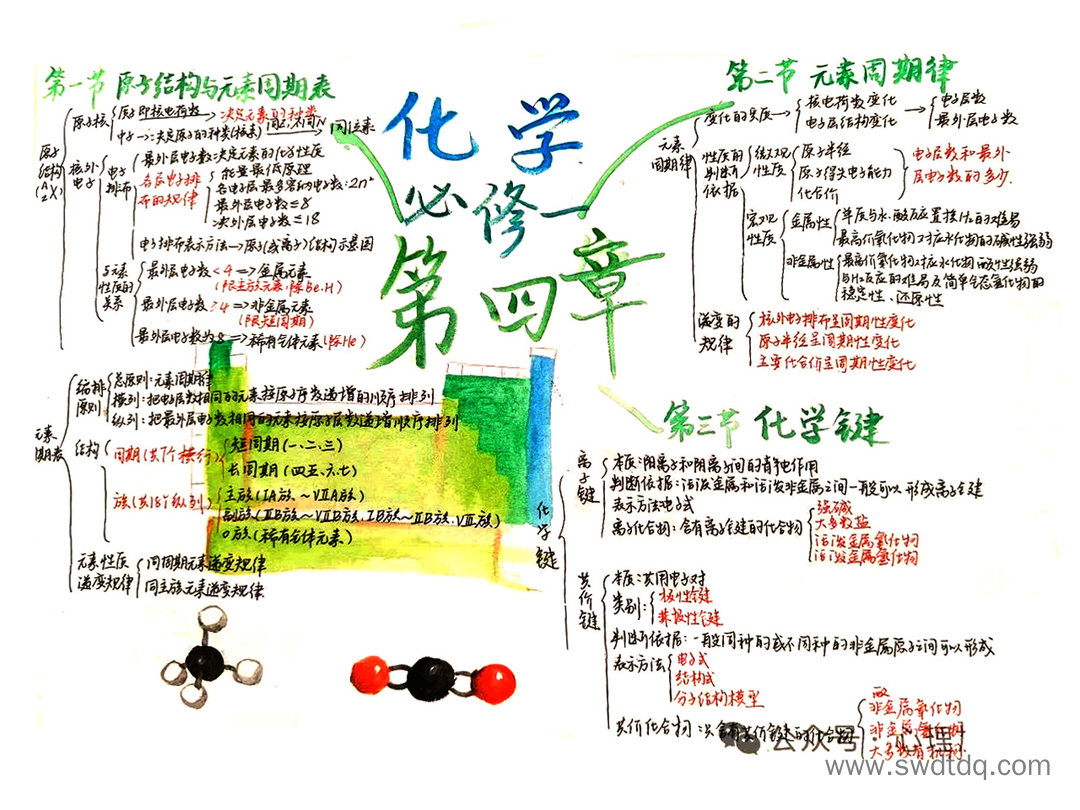 化学
必修一
第四章
第一节 原子结构与元素周期表
原子结构
原子核
质子即核电荷数→决定元素的种类
中子→决定原子的种类(核素)
同位素
核外电子
电子排布
最外层电子数决定元素的化学性质
各层电子排布的规律
能量最低原理
各电子层最多容的电子数:2n²
最外层电子数≤8
次外层电子数≤18
电子排布表示方法→原子(或离子)结构示意图
与元素性质的关系
最外层电子数<4⇒金属元素
(限主族元素.除Be.H)
最外层电子数≥4⇒非金属元素
(限短周期)
最外层电子数为8⇒稀有气体元素(除He)
元素周期表
编排原则
总原则:元素周期律
横列:把电子层数相同的元素按原子序数递增的顺序排列
纵列:把最外层电子数相同的元素按原子层数递增顺序排列
结构
周期(共7个横行)
短周期(一、二、三)
长周期(四.五、六.七)
族(共18个纵列)
主族(IA族~VIIA族)
副族(IIIB族~VIIB族.IB族~IIB族.VIII族)
0族(稀有气体元素)
元素性质递变规律
同周期元素递变规律
同主族元素递变规律
第二节 元素周期律
元素周期律
变化的实质→
核电荷数变化
电子层结构变化
电子层数
最外层电子数
性质的判断依据
微观性质
原子半径
原子得失电子能力
化合价
电子层数和最外层电子数的多少.
宏观性质
金属性
单质与水、酸反应置换H₂的难易
最高价氧化物对应水化物的碱性强弱
非金属性
最高价氧化物对应水化物酸性强弱
与H₂反应的难易及简单气态氢化物的稳定性、还原性
递变的规律
核外电子排布呈周期性变化
原子半径呈周期性变化
主要化合价呈周期性变化
第三节 化学键
化学键
离子键
本质:阳离子和阴离子间的静电作用
判断依据:活泼金属和活泼非金属之间一般可以形成离子键
表示方法电子式
离子化合物:含有离子键的化合物
强碱
大多数盐
活泼金属氧化物
活泼金属氢化物
共价键
本质:共用电子对
类别:
极性键
非极性键
判断依据:一般同种的或不同种的非金属原子之间可以形成
表示方法
电子式
结构式
分子结构模型
共价化合物:只含有共价键的化合物
酸
非金属氧化物
非金属氢化物
大多数有机物
公众号·心理
www.swdtdq.com